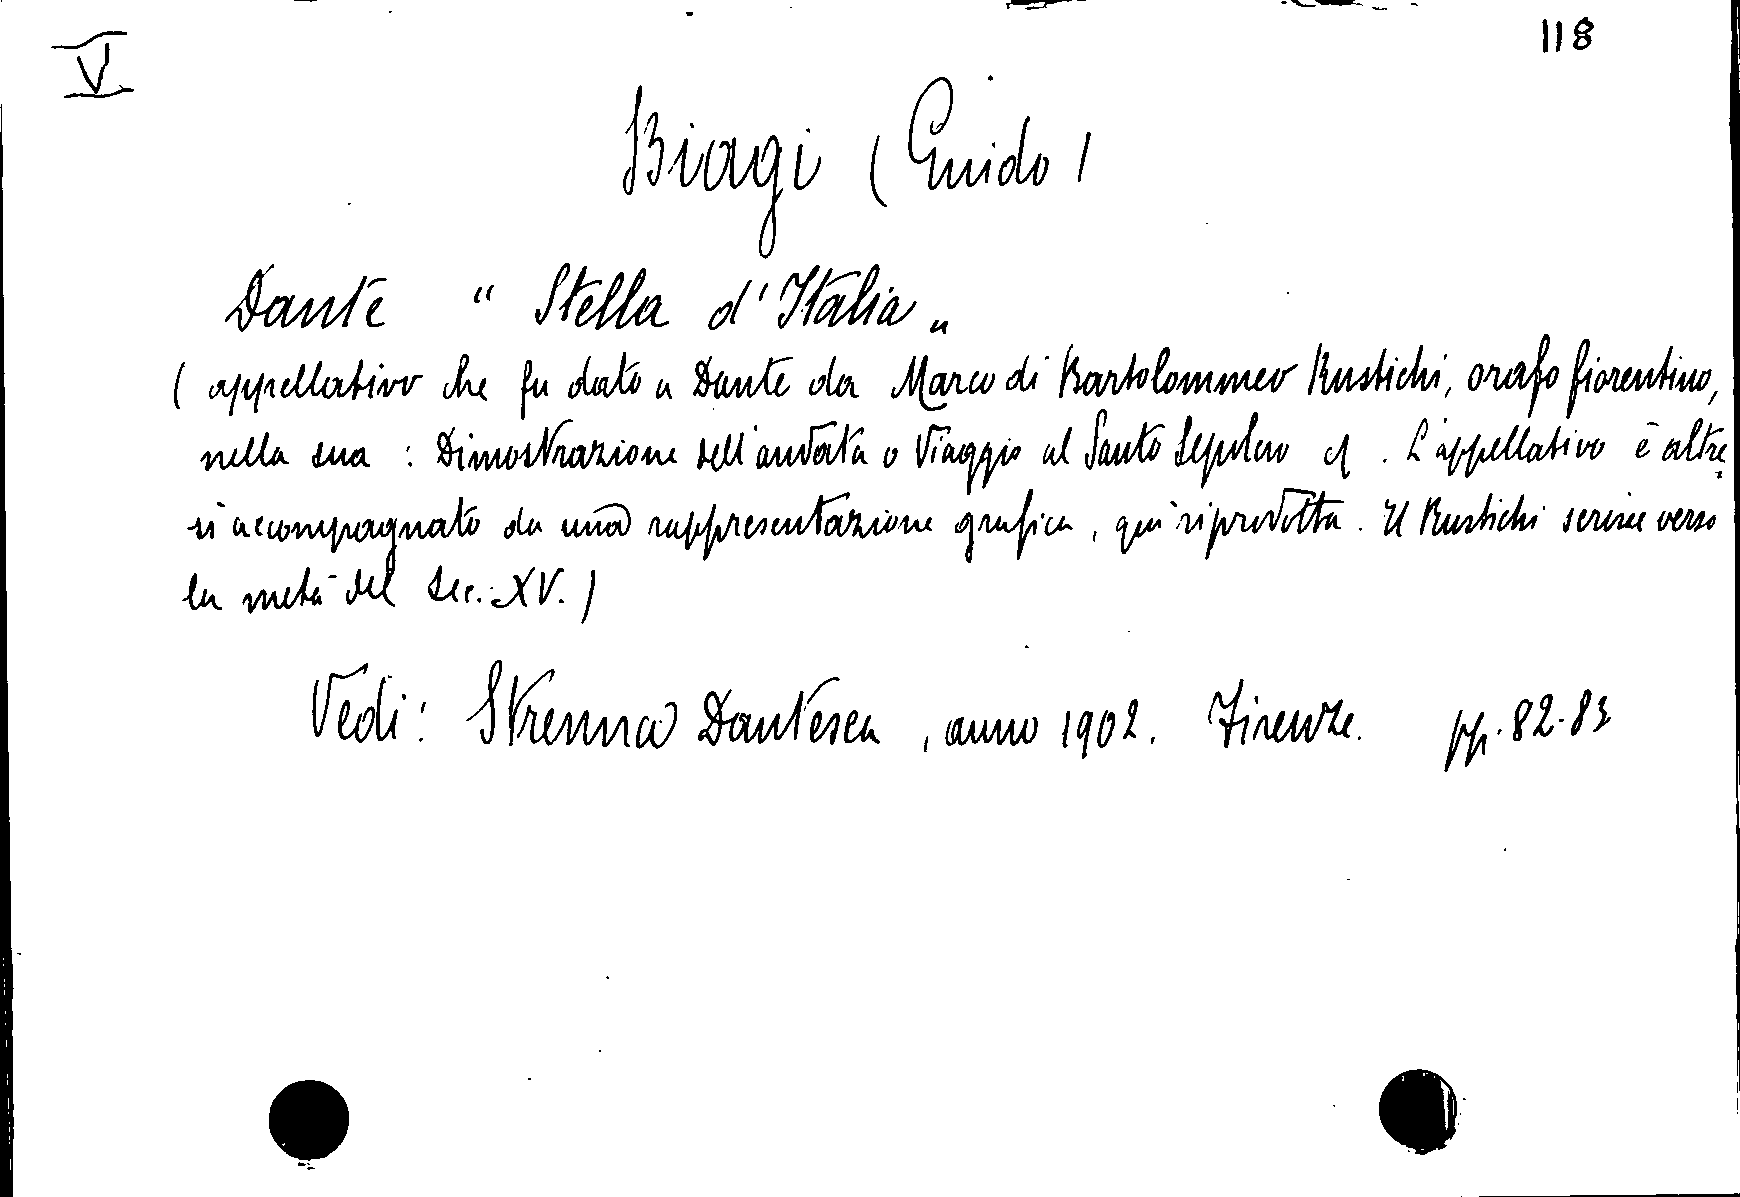 V
118
Biagi (Guido)
Dante " Stella d'Italia „
( appellativo che fu dato a Dante da Marco di Bartolommeo Rustichi, orafo fiorentino,
nella sua : Dimostrazione dell'andata o Viaggio al Santo Sepolcro . L'appellativo è altre
sì accompagnato da una rappresentazione grafica, qui riprodotta. Il Rustichi scrisse verso
la metà del Sec. XV. )
Vedi: Strenna Dantesca, anno 1902. Firenze. pp. 82-83